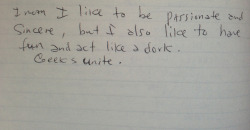 I mean I like to be passionate and
sincere, but I also like to have
fun and act like a dork.
Geeks unite.